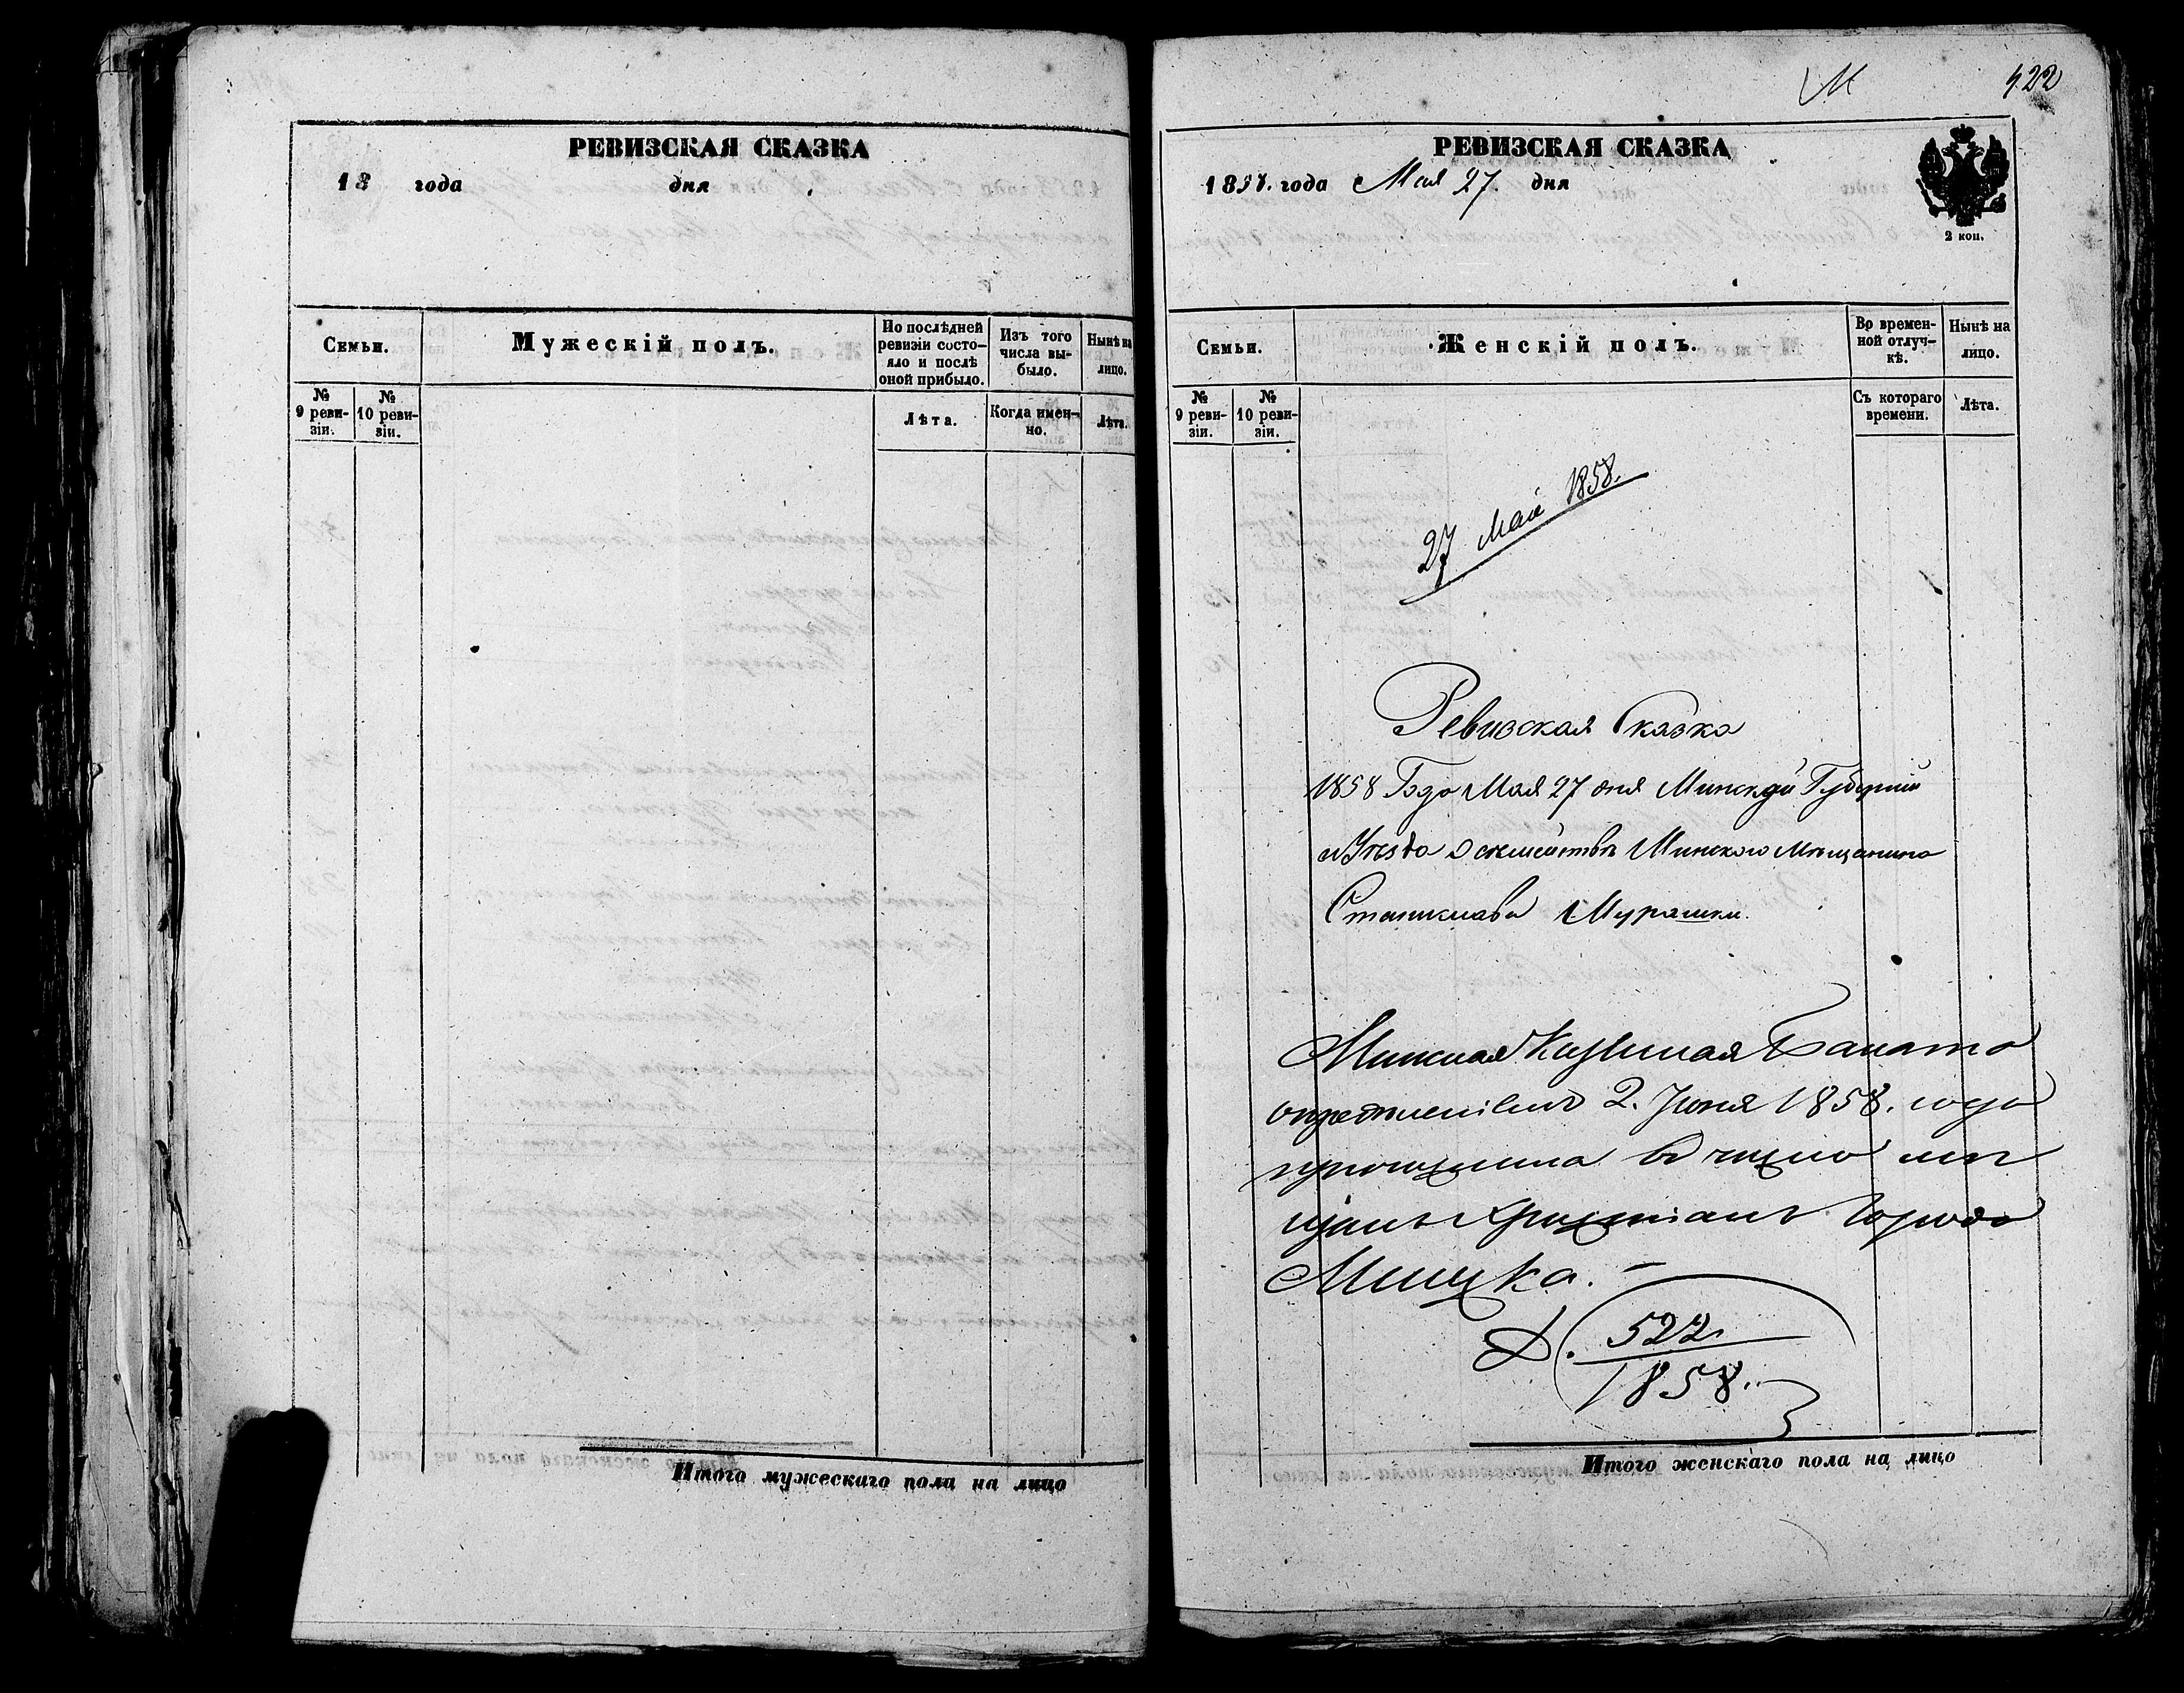 РЕВИЗСКАЯ СКАЗКА
18 года дня
Семьи.
Мужескій полъ.
По послѣдней ревизіи состо-яло и послѣ оной прибыло.
Изъ того числа вы-было.
Нынѣ на лицо.
№ 9 реви-зіи.
№ 10 реви-зіи.
Лѣта.
Когда имен-но.
Лѣта.
Итого мужескаго пола на лицо
М
422
РЕВИЗСКАЯ СКАЗКА
1858. года Мая 27. дня
2 коп.
Семьи.
Женскій полъ.
Во времен-ной отлуч-кѣ.
Нынѣ на лицо.
№ 9 реви-зіи.
№ 10 реви-зіи.
Съ котораго времени.
Лѣта.
27 Мая 1858.
Ревизская Сказка
1858 Года Мая 27 дня Минской Губерніи
и Уезда о семействѣ Минского Мѣщанина
Станислава Мурашки.
Минская Казенная Палата
опредѣленіемъ 2. Іюня 1858. года
причислила въ число мѣ
щанъ христіанъ города
Минска.
Д. 522
1858.
Итого женскаго пола на лицо